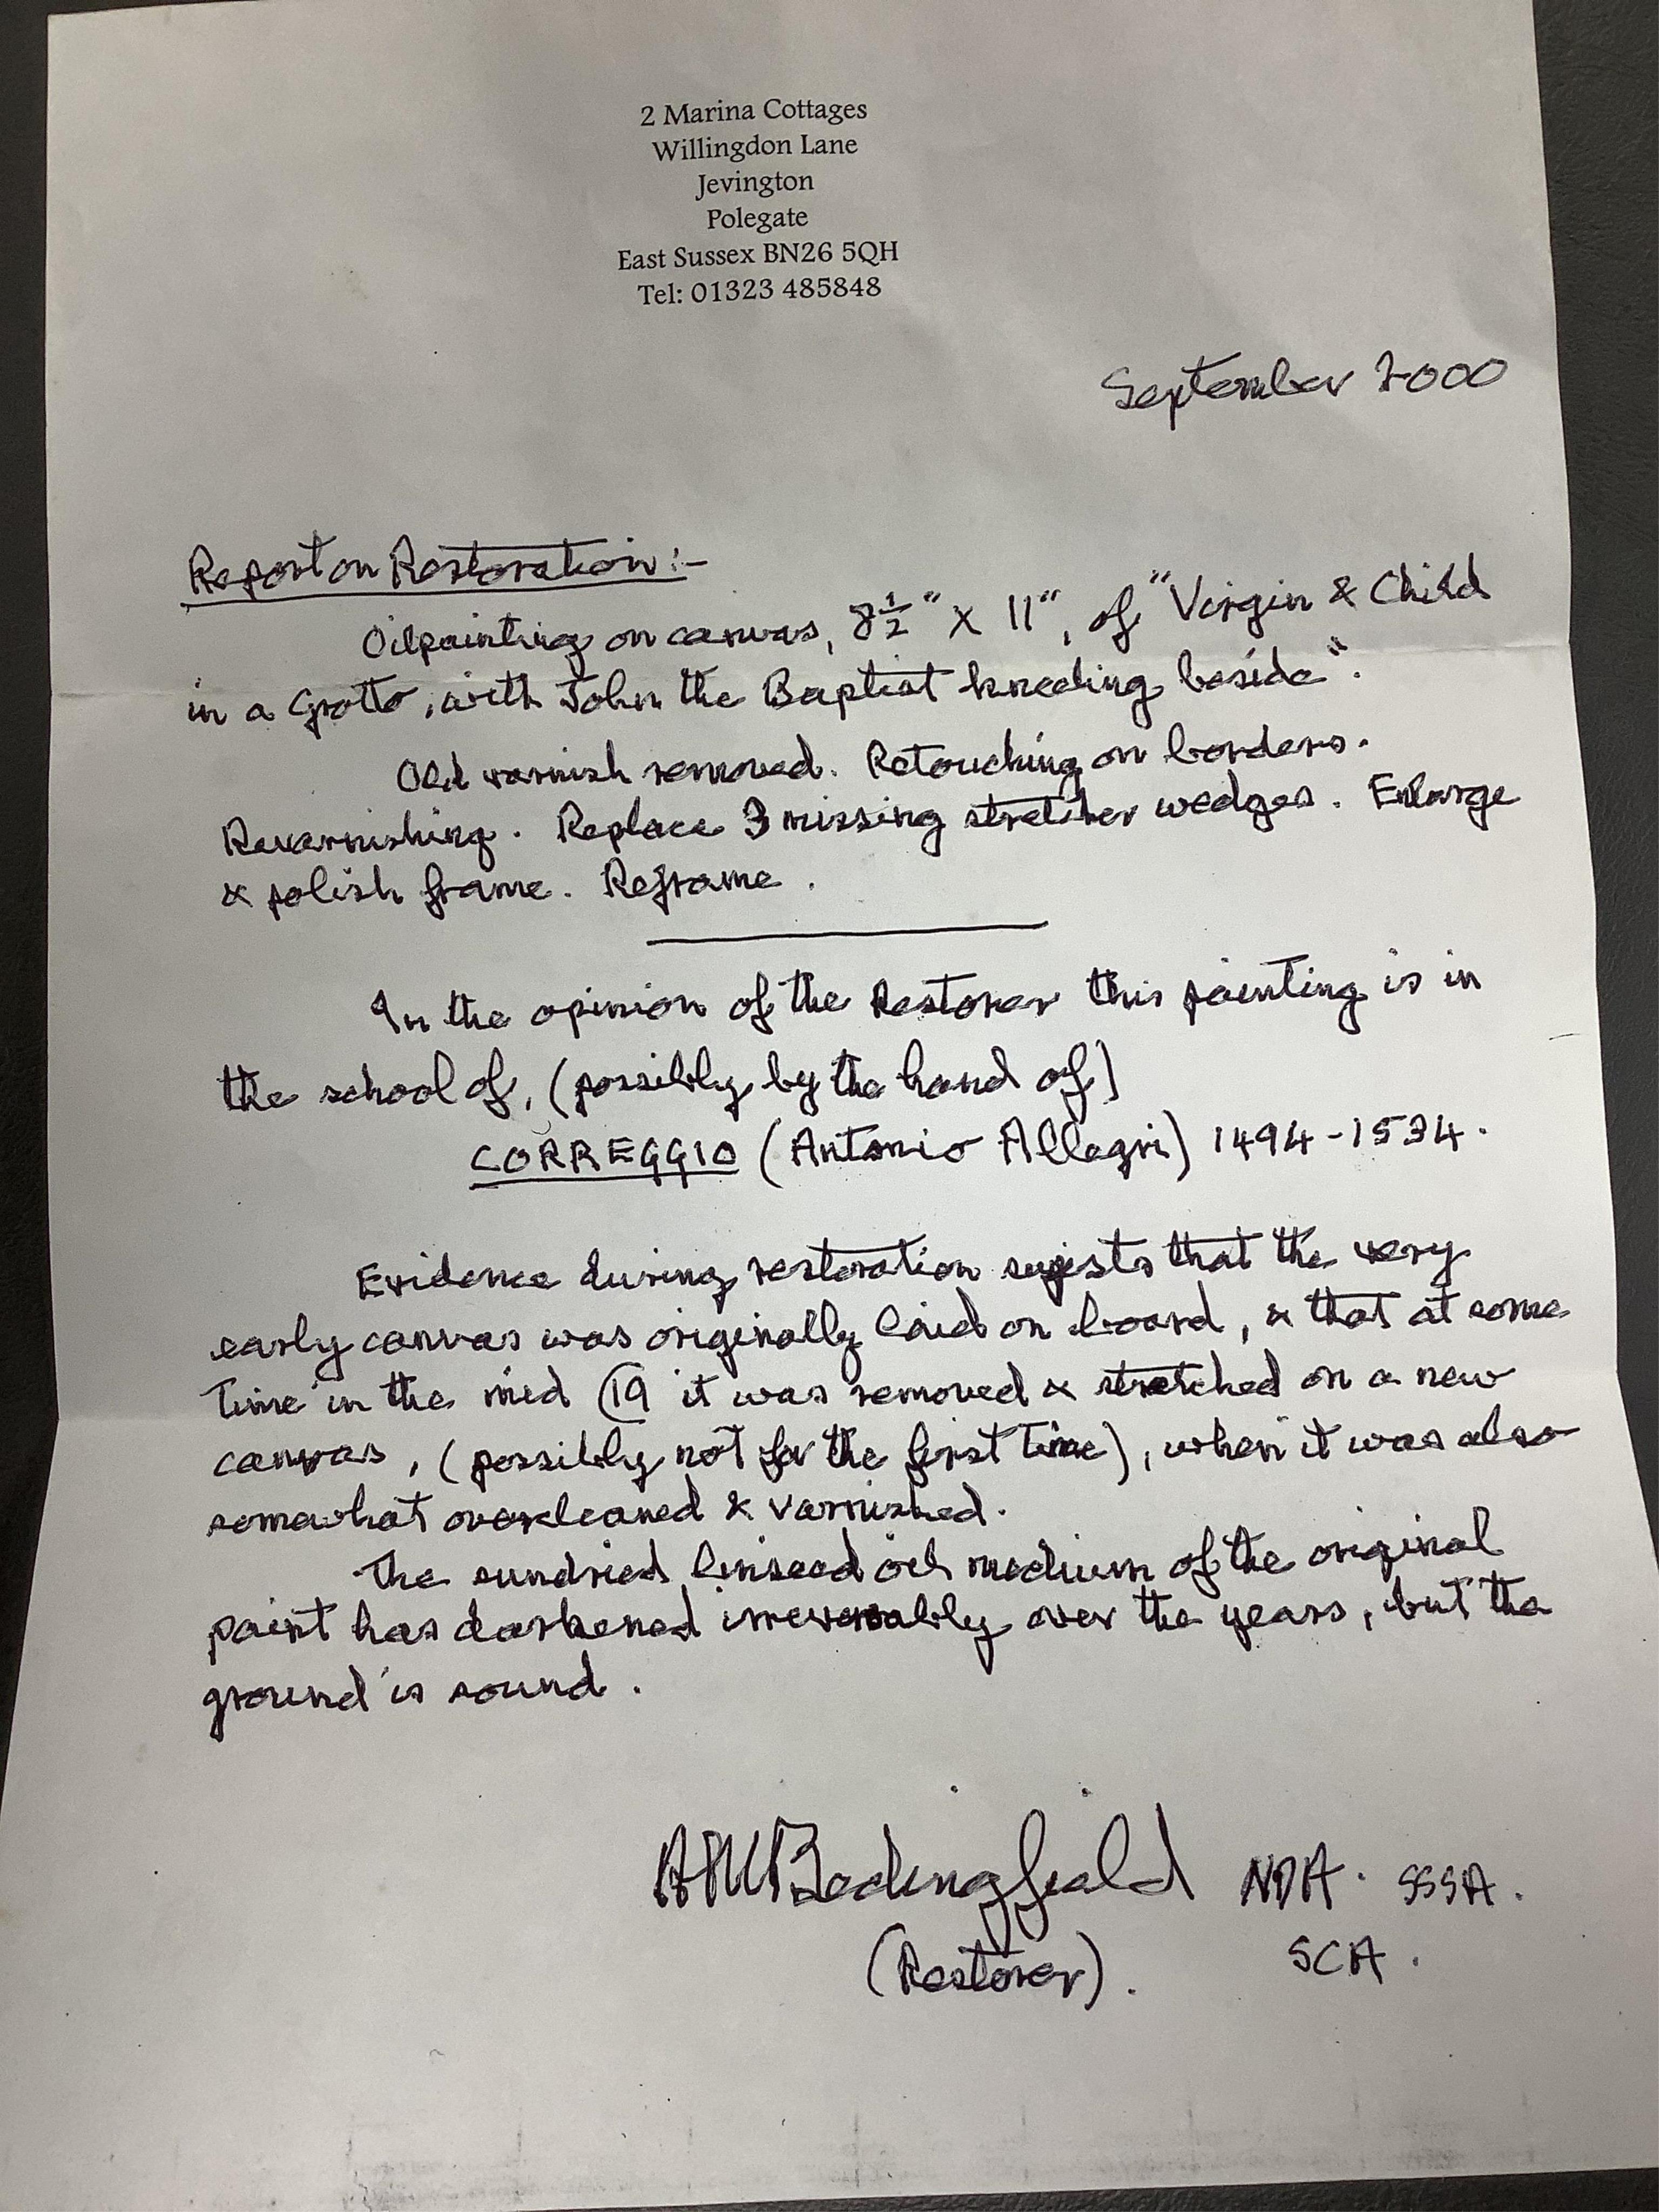 2 Marina Cottages
Willingdon Lane
Jevington
Polegate
East Sussex BN26 5QH
Tel: 01323 485848
September 2000
Report on Restoration:-
Oilpainting on canvas, 8½" x 11", of "Virgin & Child
in a Grotto, with John the Baptist kneeling beside".
Old varnish removed. Retouching on borders.
Revarnishing. Replace 3 missing stretcher wedges. Enlarge
& polish frame. Reframe.
In the opinion of the Restorer this painting is in
the school of, (possibly by the hand of)
CORREGGIO (Antonio Allegri) 1494-1534.
Evidence during restoration sugests that the very
early canvas was originally laid on board, & that at some
time in the mid C19 it was removed & stretched on a new
canvas, (possibly not for the first time), when it was also
somewhat overcleaned & varnished.
The sundried linseed oil medium of the original
paint has darkened over the years, but the
ground is sound.
Bedingfeld NDA. SSSA.
(Restorer). SCA.